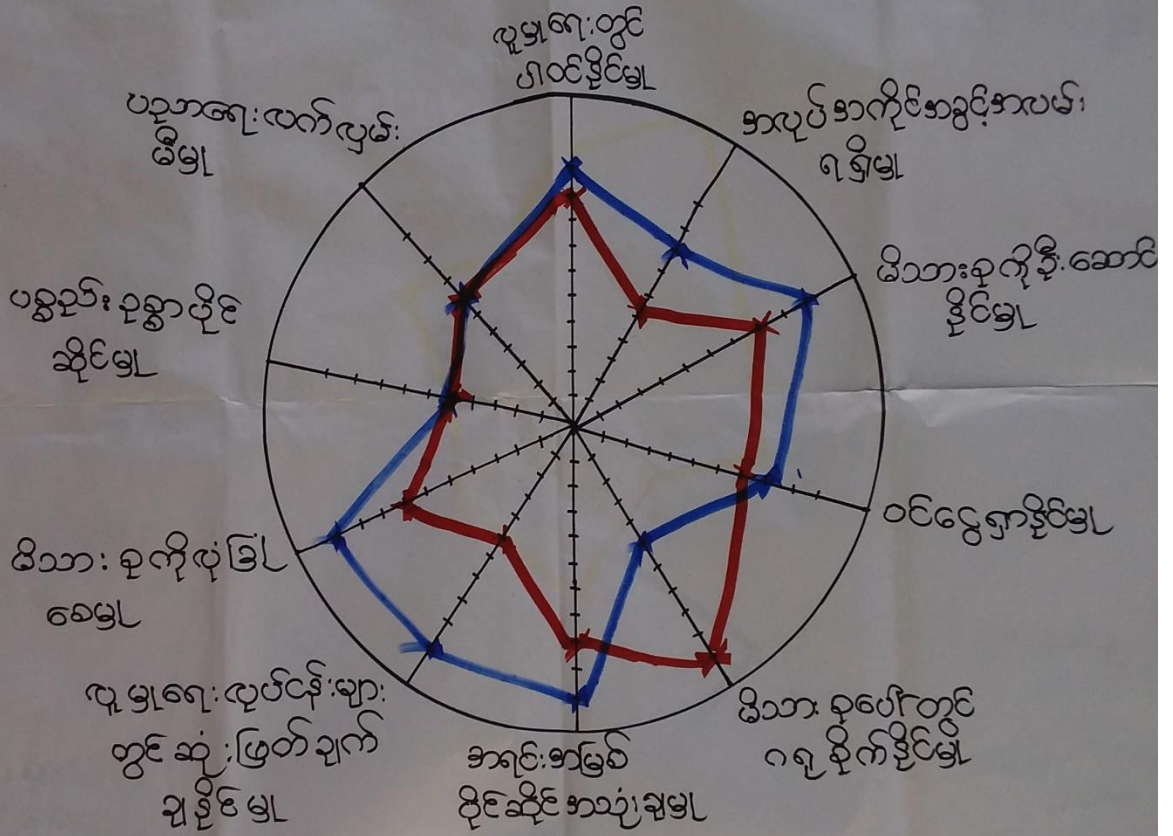 လူမှုရေးတွင်
ပါဝင်နိုင်မှု
အလုပ်အကိုင်အခွင့်အလမ်း
ရရှိမှု
မိသားစုကိုဦးဆောင်
နိုင်မှု
ဝင်ငွေရှာနိုင်မှု
မိသားစုပေါ်တွင်
ဂရုစိုက်နိုင်မှု
အရင်းအမြစ်
ပိုင်ဆိုင်အသုံးချမှု
လူမှုရေးလုပ်ငန်းများ
တွင်ဆုံးဖြတ်ချက်
ချနိုင်မှု
မိသားစုကိုလုံခြုံ
စေမှု
ပစ္စည်းဥစ္စာပိုင်
ဆိုင်မှု
ပညာရေးလက်လှမ်း
မီမှု